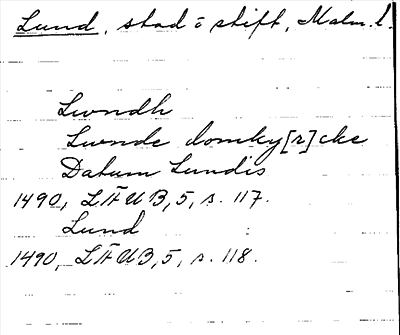 Lund, stad o stift, Malm. l.
Lwndh
Lwnde domky[r]cke
Datum Lundis
1490, LÄUB, 5, s. 117.
Lund
1490, LÄUB, 5, s. 118.